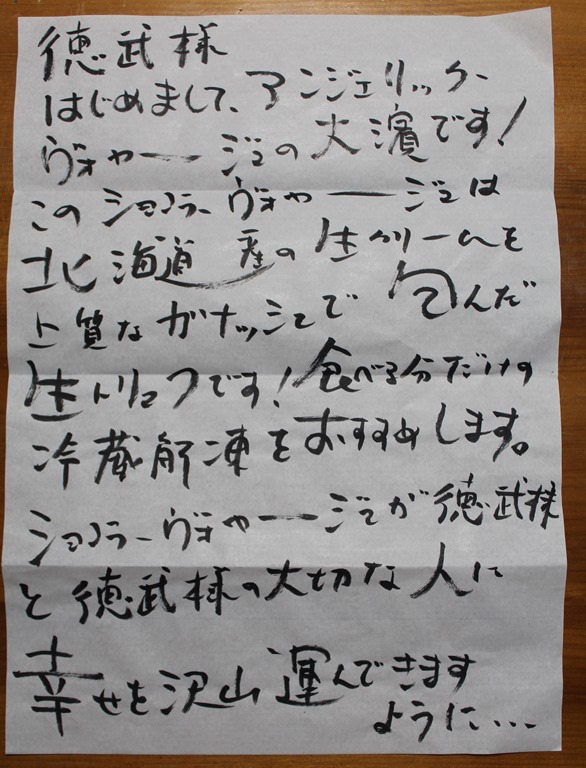 徳武様
はじめまして、アンジェリック
ヴォヤージュの大濱です!
このショコラヴォヤージュは
北海道産の生クリームを
上質なガナッシュで包んだ
生トリュフです!食べる分だけの
冷蔵解凍をおすすめします。
ショコラヴォヤージュが徳武様
と徳武様の大切な人に
幸せを沢山運んできます
ように…